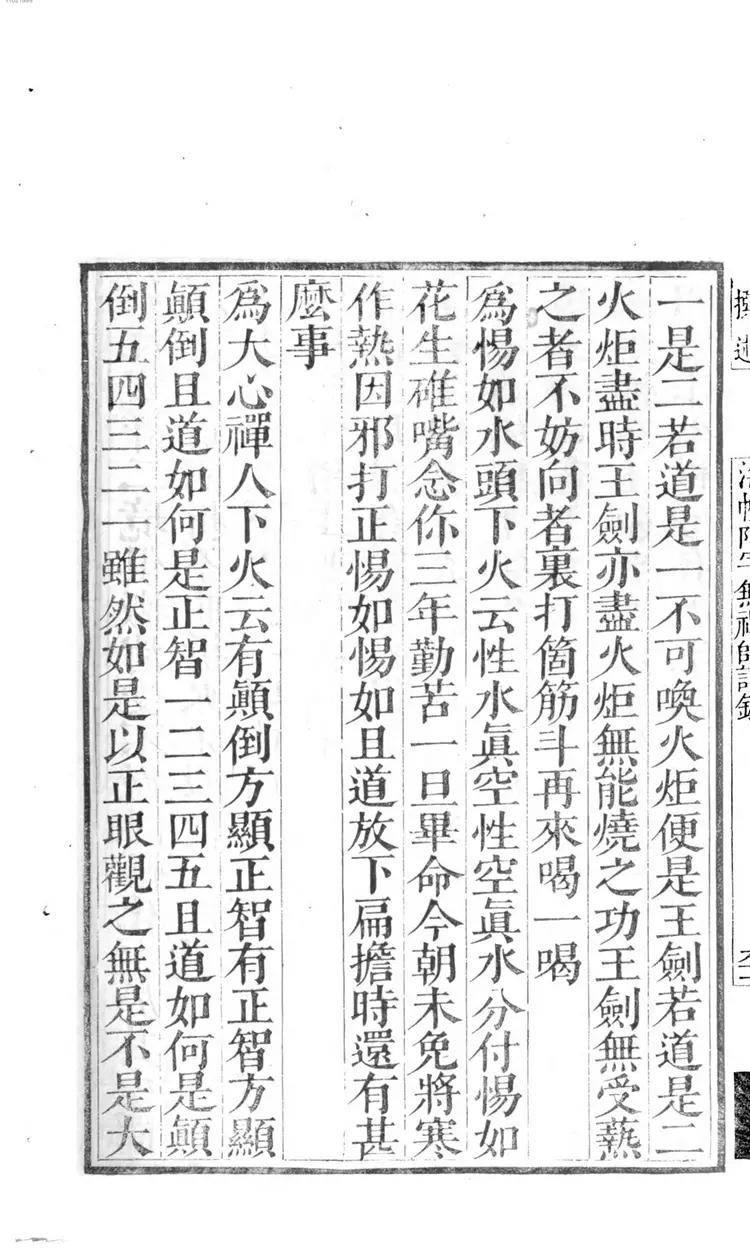 一是二若道是一不可喚火炬便是王劍若道是二
火炬盡時王劍亦盡火炬無能燒之功王劍無受爇
之者不妨向者裏打箇筋斗再來喝一喝
為惕如水頭下火云性水眞空性空眞水分付惕如
花生碓嘴念你三年勤苦一旦畢命今朝未免將寒
作熱因邪打正惕如惕如且道放下扁擔時還有甚
麼事
為大心禪人下火云有顚倒方顯正智有正智方顯
顚倒且道如何是正智一二三四五且道如何是顚
倒五四三二一雖然如是以正眼觀之無是不是大